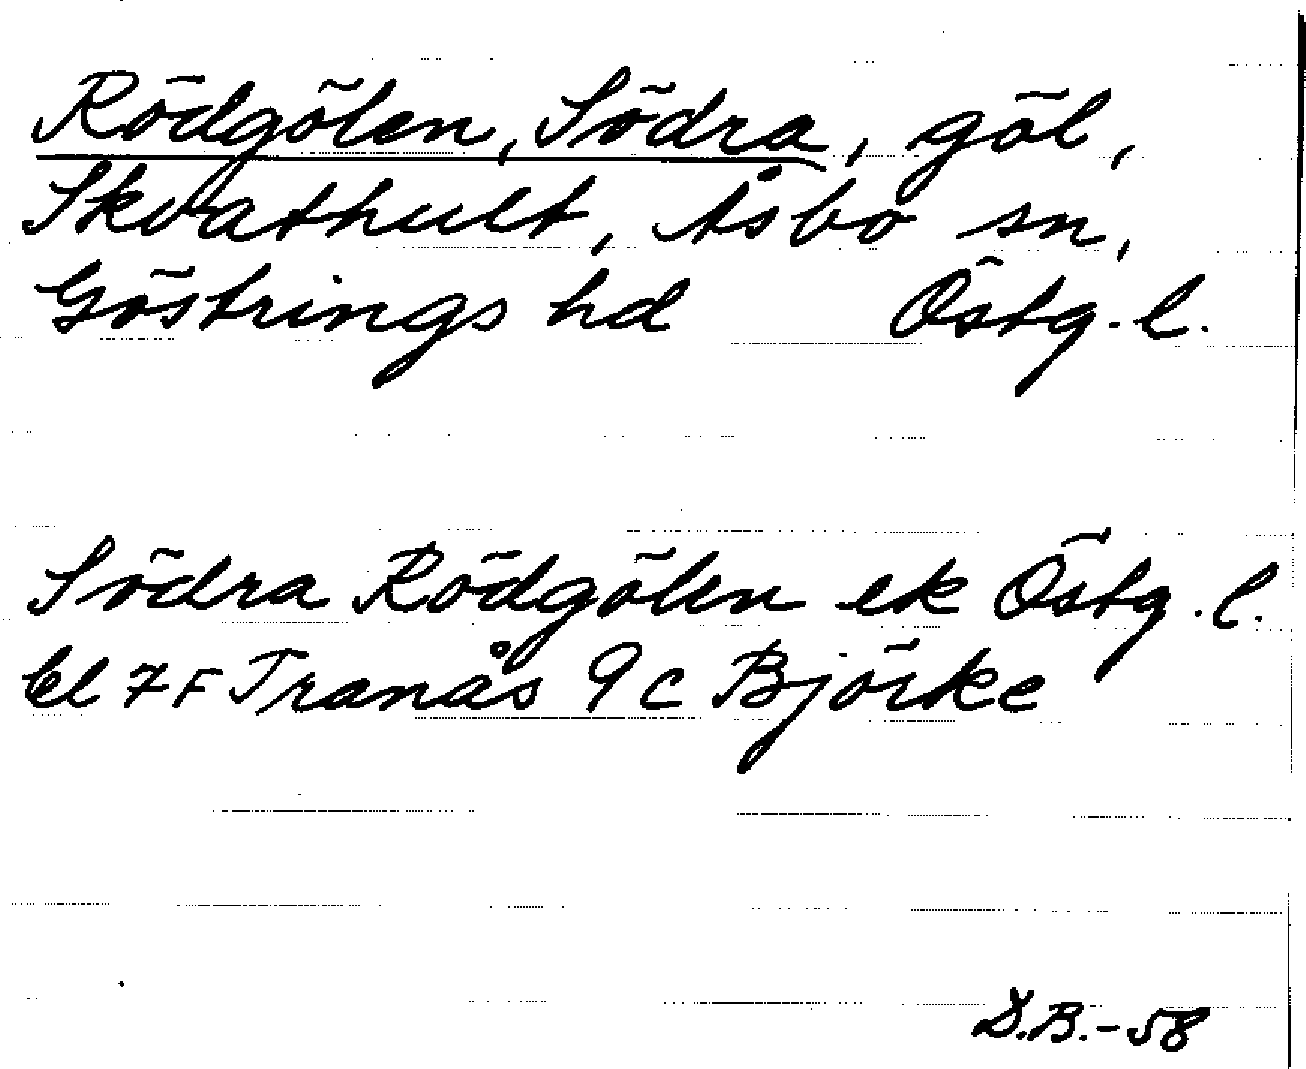 Rödgölen, Södra, göl,
Skvathult, Åsbo sn,
Göstrings hd Östg. l.
Södra Rödgölen ek Östg. l.
bl 7 F Tranås 9 c Björke
D.B.-58